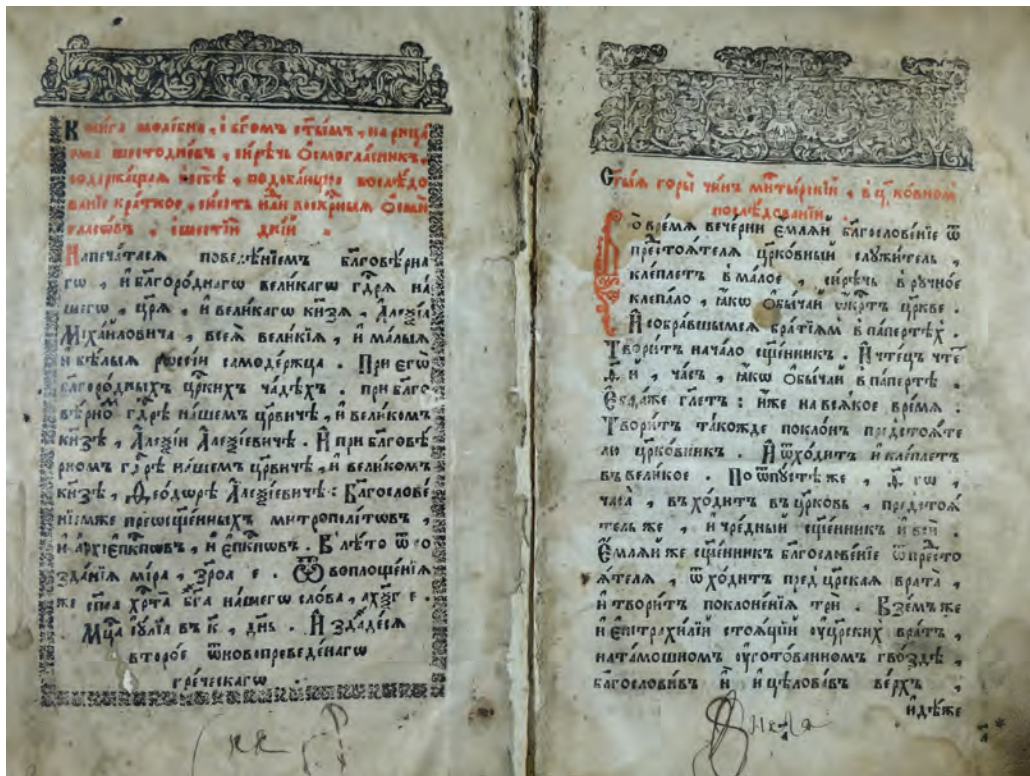 Кни́га моле́бна, і бг҃омъ ст҃ы́мъ, нарица́
ема шестодне́въ, си́рѣчь О҆смогла́сникъ,
содержа́щая въ себѣ̀, подоба́ющее послѣ́до
ва́нїе кра́ткое, си́есть на́й воскр҃ныя О҆сми́
гласѡ́въ, і шестѝй дні́й.
Напеча́тася повелѣ́нїемъ бл҃говѣ́рна
гѡ, и҆ бл҃горо́днагѡ вели́кагѡ гдⷭ҇ря на́
шегѡ, цр҃я̀, и҆ вели́кагѡ кн҃зя, А҆леѯі́а
Мїха́йловича, всея̀ вели́кїя, и҆ ма́лыя
и҆ бѣ́лыя рѡссі́и самоде́ржца. При єгѡ̀
бл҃горо́дныхъ црⷭ҇кихъ ча́дѣхъ. при бл҃го
вѣ́рно гдⷭ҇рѣ на́шемъ цр҃вичѣ, и҆ вели́комъ
кн҃зѣ, А҆леѯі́и А҆леѯі́евичѣ. И҆ при бл҃говѣ́
рномъ гдⷭ҇рѣ на́шемъ цр҃вичѣ, и҆ вели́комъ
кн҃зѣ, Ѳео́дѡрѣ А҆леѯі́евичѣ: Бл҃гослове́
нїемже преѡсщ҃е́нныхъ митрополі́тѡвъ,
и҆ а҆рхїєпⷭ҇кпѡвъ, и҆ є҆пⷭ҇кпѡвъ. В лѣ́то ѿ со
зда́нїя мі́ра, ҂зроа е. Ѿ воплоще́нїя
же сп҃са хрⷭ҇та̀ бг҃а на́шегѡ сло́ва, ҂ахѯг е.
Мцⷭ҇а і҆у́лїа въ к҃, дн҃ь. И҆зда́деся
второ́е ѿ новопреведе́нагѡ
гре́ческагѡ.
Ст҃ы́я горы̀ чи́нъ мнⷭ҇ты́рскїй, в црⷪ҇ко́вном
послѣ́дованїи.
По вре́мя вече́рни є҆мля́й бл҃гослове́нїе ѿ
предстоя́теля црⷪ҇ко́вный служи́тель,
кле́плетъ в ма́лое, си́рѣчь в ру́чное
клепа́ло, ꙗ҆́кѡ о҆бы́чай ѡ҆́крⷭ҇тъ цр҃кве.
И҆ собра́вшымся бра́тїямъ в па́пертѣх.
Твори́тъ нача́ло сщ҃е́нникъ. И҆ чте́цъ чте́
ѳ҃ й, ча́съ, ꙗ҆́кѡ о҆бы́чай в па́пертѣ.
Є҆гда́же гл҃етъ: и҆́же на вся́кое вре́мя:
Твори́тъ та́кожде покло́нъ предстоя́те
лю црⷪ҇ко́вникъ. И҆ ѿхо́дитъ и҆ кле́плетъ
въ вели́кое. По ѿпу́стѣ же, ѳ҃ гѡ,
часа̀, въхо́дитъ въ цр҃ковь, предстоя́
тель же, и҆ чре́дный сщ҃е́нникъ и҆ всѝ.
Є҆мля́й же сщ҃е́нникъ бл҃гослове́нїе ѿ предсто
я́теля, ѿхо́дитъ пред црⷭ҇кая врата̀,
и҆ твори́тъ поклоне́нїя трѝ. Взе́мъ же
и҆ є҆пїтрахи́лїй стоя́щїй оу҆ црⷭ҇ких вра́тъ,
на та́мошномъ оу҆гото́ванномъ гво́здѣ,
бл҃гослови́въ и҆̀ и҆ цѣлова́въ ве́рхъ,
и҆дѣ́же